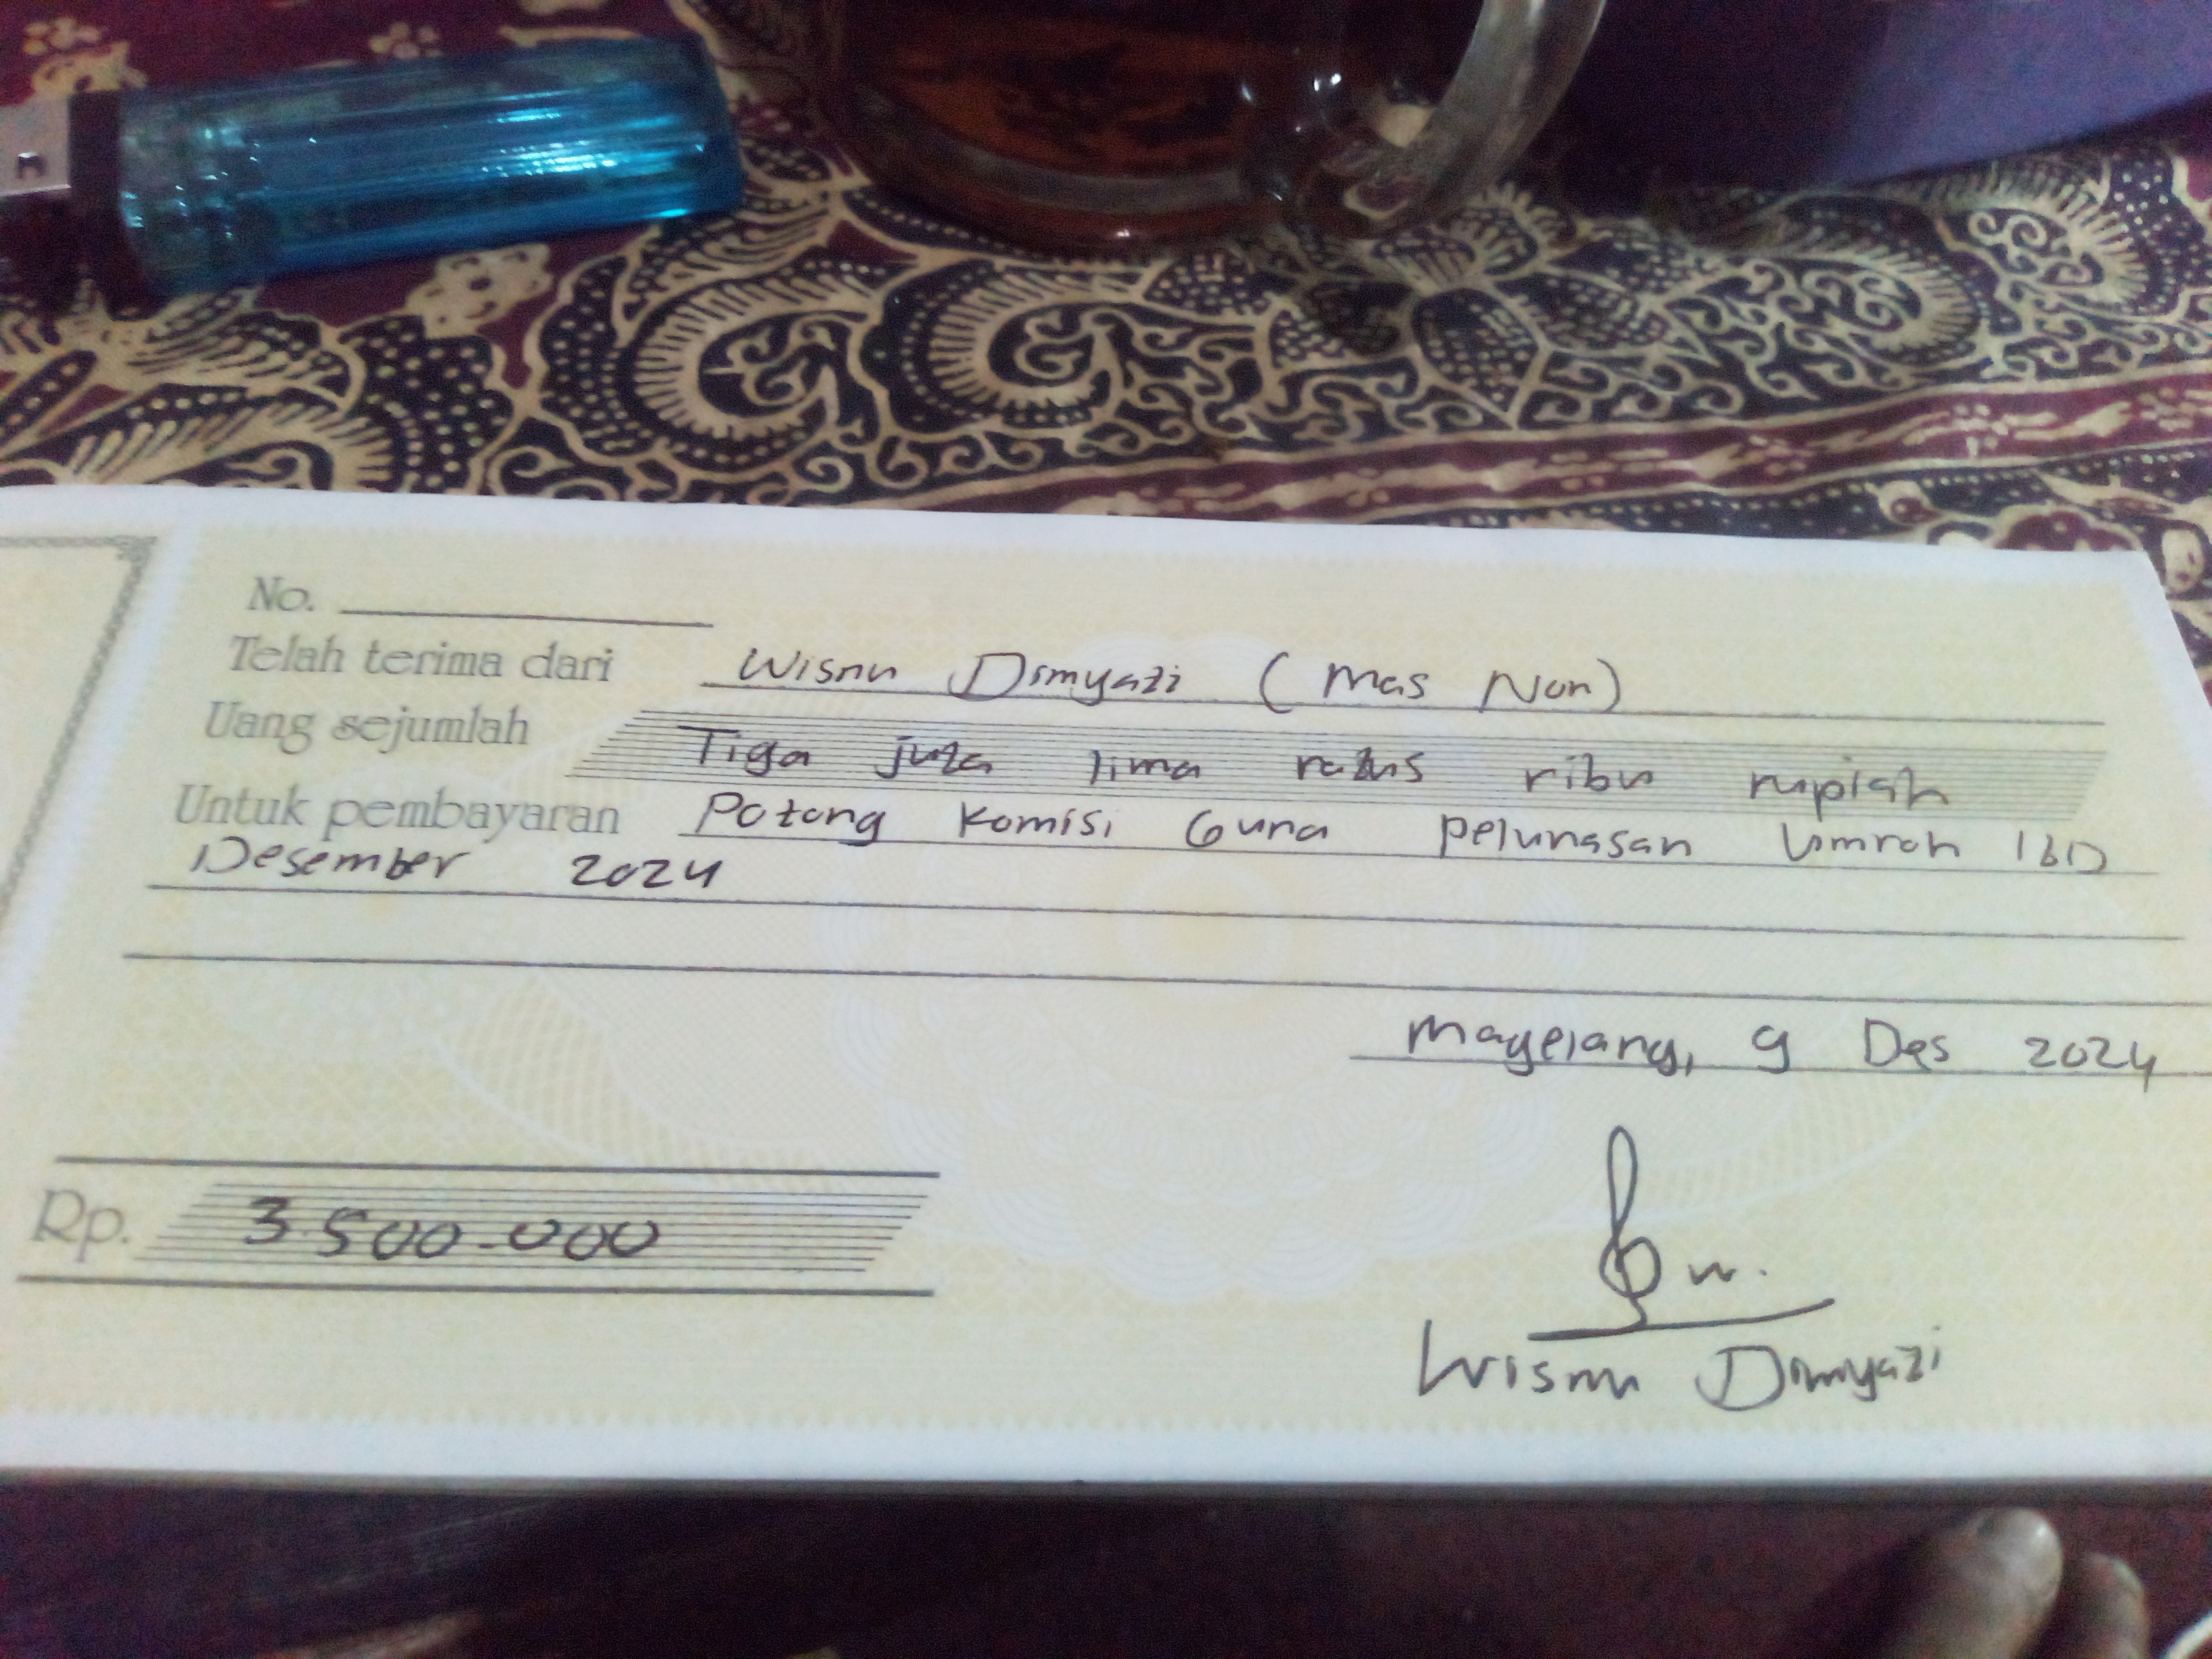 No.
Telah terima dari Wisnu Dimyati (Mas Nun)
Uang sejumlah Tiga juta lima ratus ribu rupiah
Untuk pembayaran Potong Komisi Guna pelunasan Umroh IBD
Desember 2024
Magelang, 9 Des 2024
Rp. 3.500.000
Wisnu Dimyati